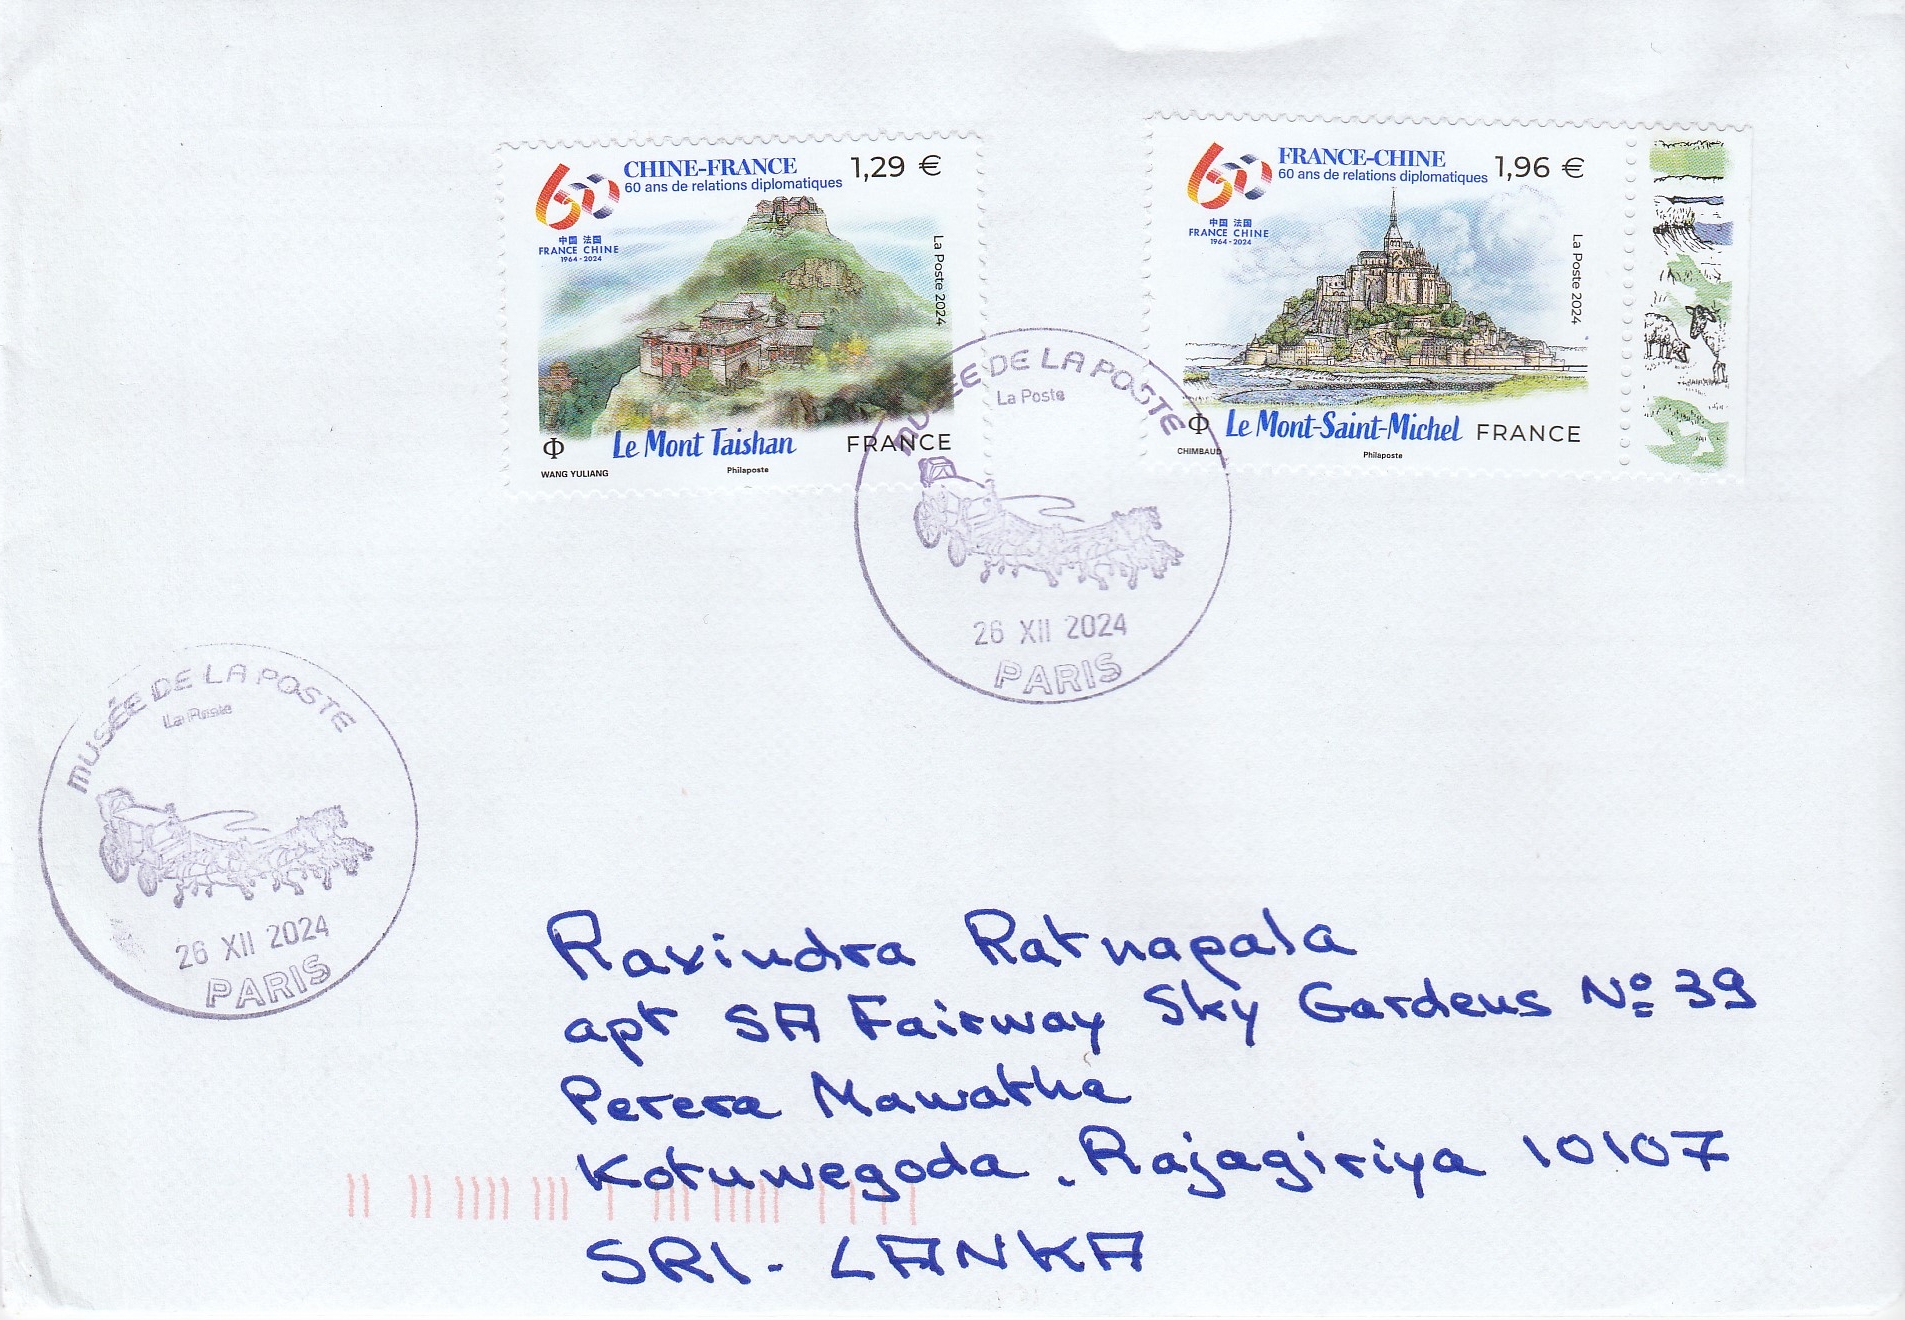 CHINE-FRANCE
60 ans de relations diplomatiques
1,29 €
60
中国 法国
FRANCE CHINE
1964 - 2024
La Poste 2024
Le Mont Taishan
FRANCE
WANG YULIANG
Philaposte
FRANCE-CHINE
60 ans de relations diplomatiques
1,96 €
60
中国 法国
FRANCE CHINE
1964 - 2024
La Poste 2024
Le Mont-Saint-Michel
FRANCE
CHIMBAUD
Philaposte
MUSÉE DE LA POSTE
La Poste
26 XII 2024
PARIS
MUSÉE DE LA POSTE
La Poste
26 XII 2024
PARIS
Ravindra Ratnapala
apt 5A Fairway Sky Gardens Nº 39
Perera Mawatha
Kotuwegoda . Rajagiriya 10107
SRI - LANKA